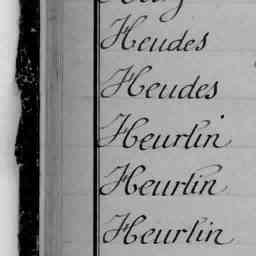 Heudes
Heudes
Heurlin
Heurlin
Heurlin